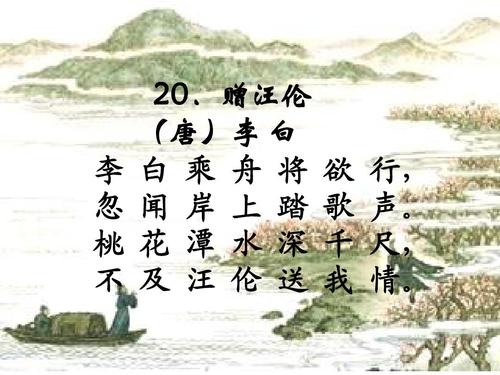 20、赠汪伦
（唐）李白
李白乘舟将欲行，
忽闻岸上踏歌声。
桃花潭水深千尺，
不及汪伦送我情。